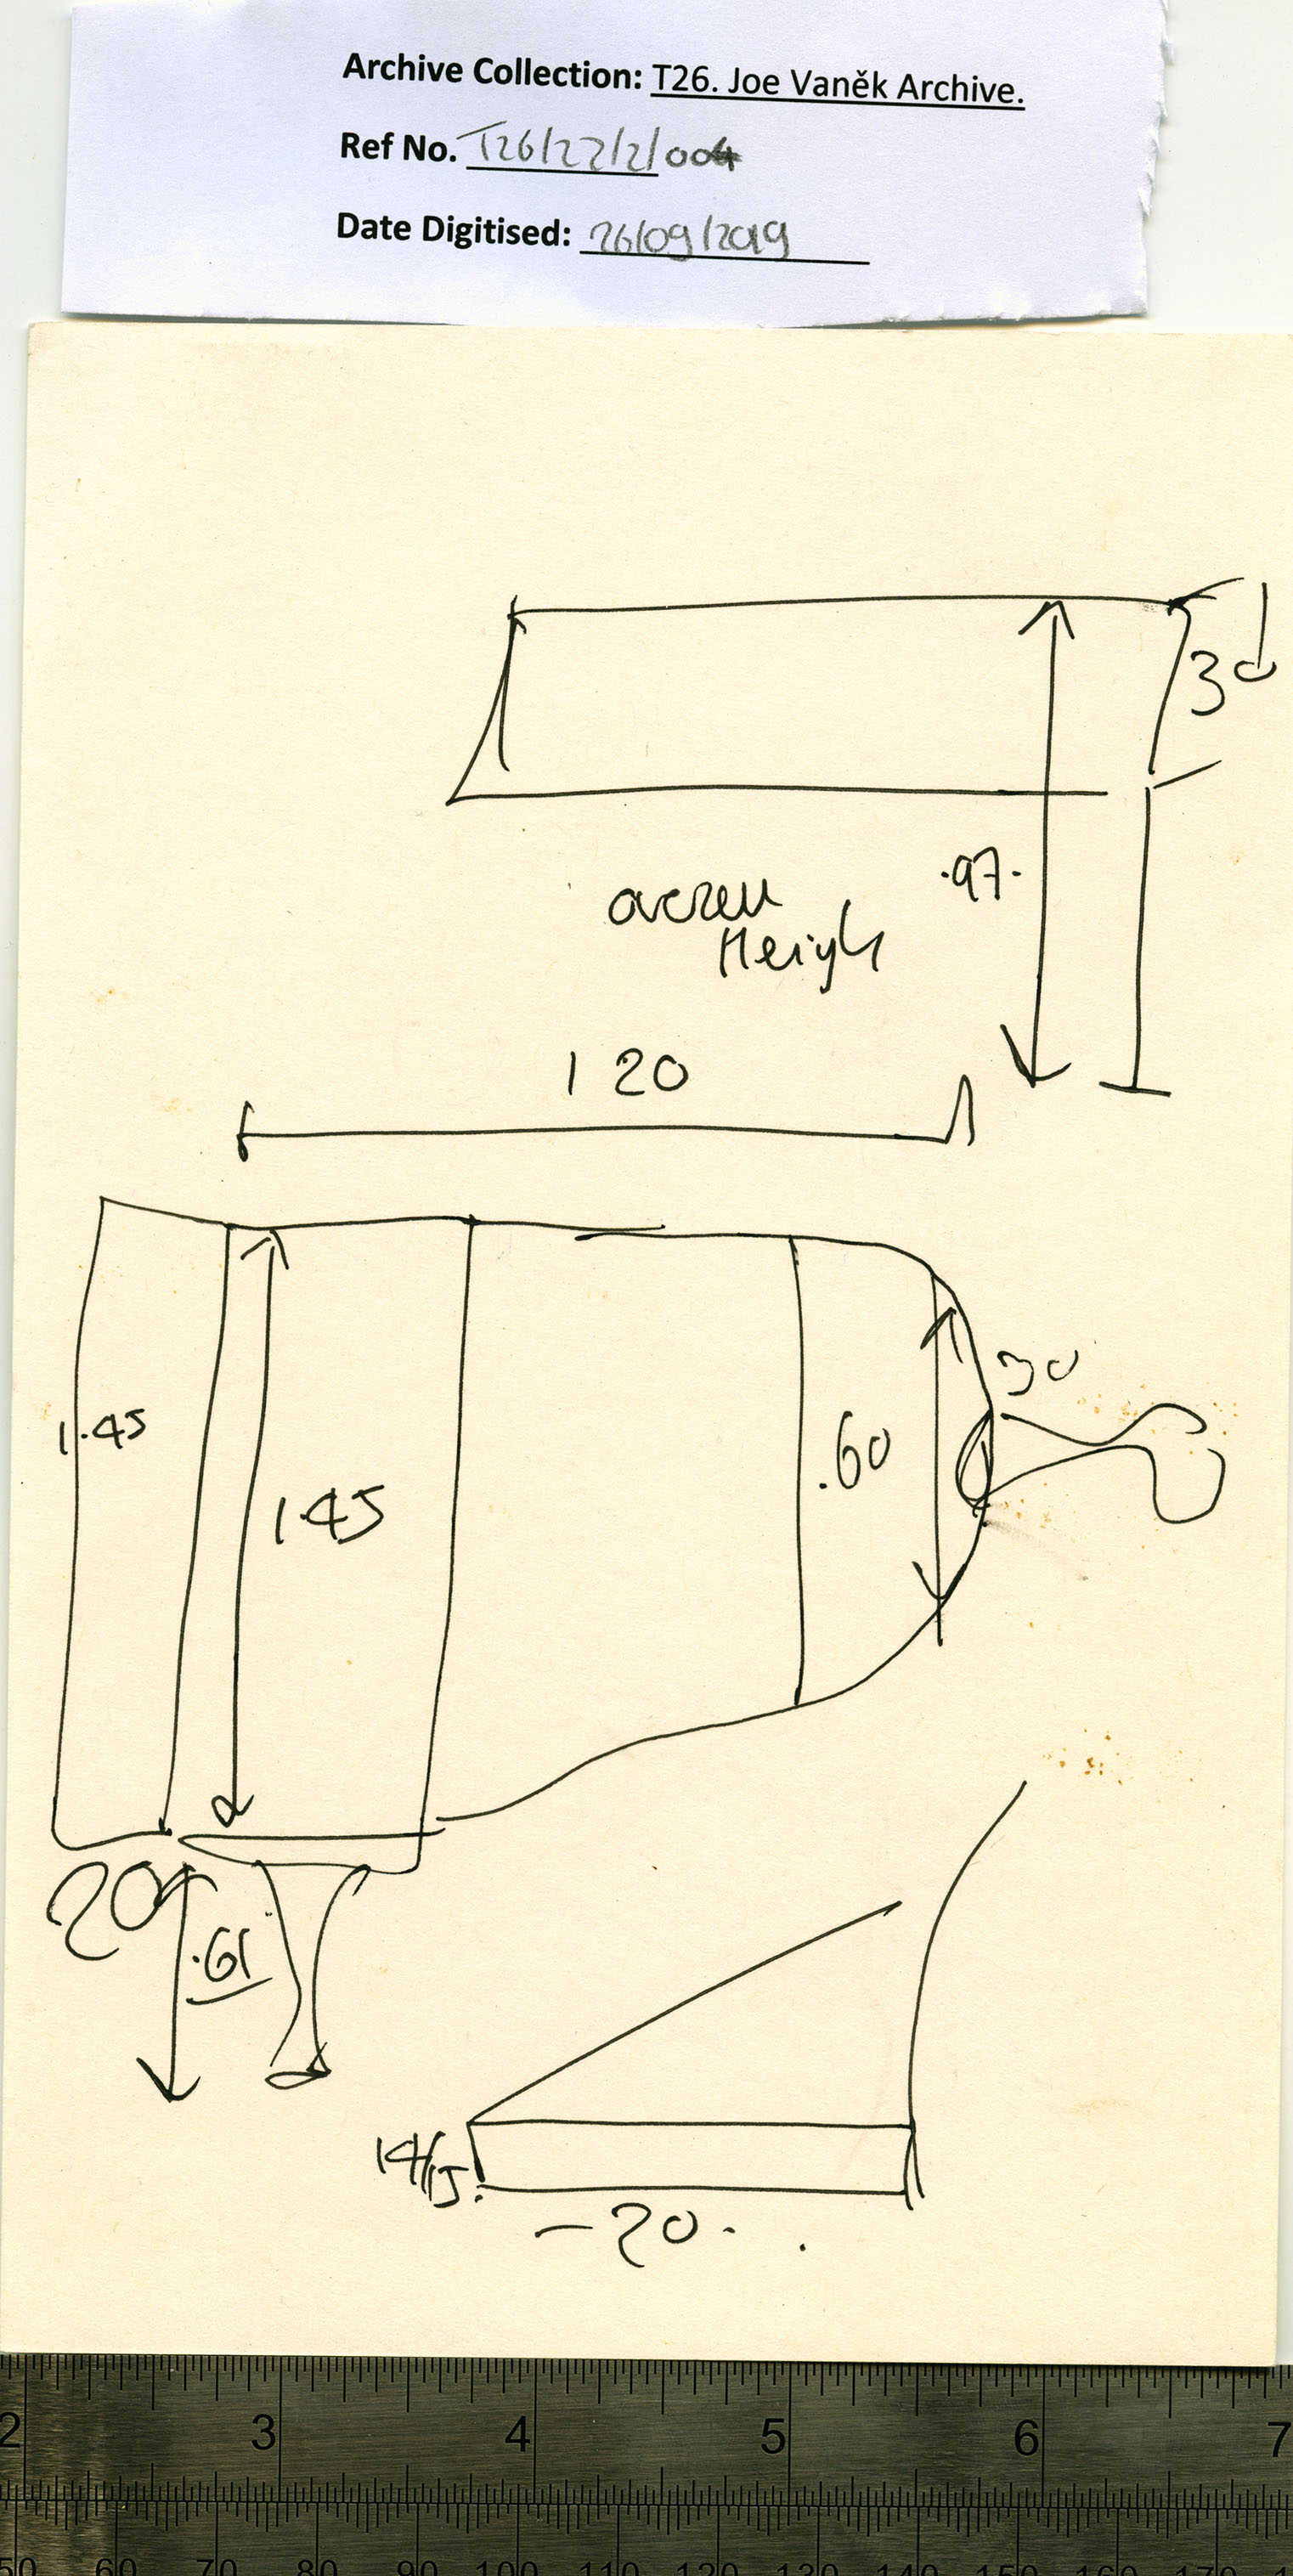 Archive Collection: T26. Joe Vaněk Archive.
Ref No. T26/22/2/004
Date Digitised: 26/09/2019
30
.97.
overall
Heigh
1 20
30
1.45
.60
1.45
20
.61
14/15.
-20-
2 3 4 5 6 7
50 60 70 80 90 100 110 120 130 140 150 160 170